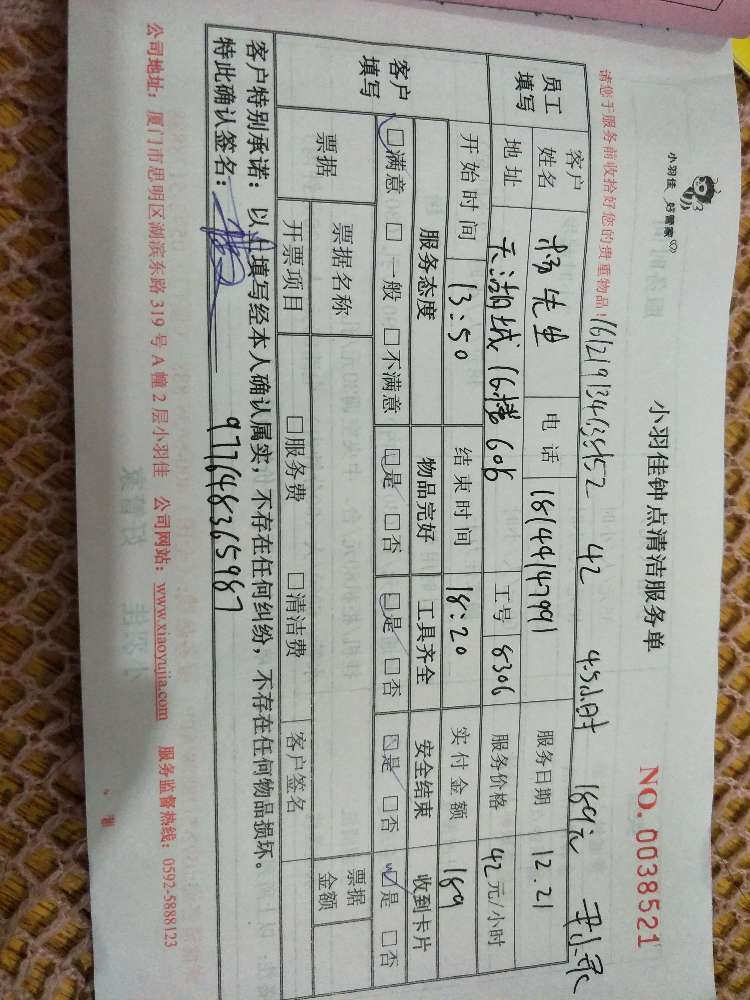 小羽佳 好管家
小羽佳钟点清洁服务单
NO.0038521
请您于服务前收拾好您的贵重物品!
42 4.5小时 189元
员工填写
客户姓名 先生 电话 18144147991 服务日期 12.21
地址 天湖城16楼606 工号 8306 服务价格 42元/小时
开始时间 13:50 结束时间 18:20 实付金额 189
客户填写
服务态度 物品完好 工具齐全 安全结束 收到卡片
□满意 □一般 □不满意 □是 □否 □是 □否 □是 □否 □是 □否
票据 票据名称 票据金额
开票项目 □服务费 □清洁费 客户签名
客户特别承诺:以上填写经本人确认属实,不存在任何纠纷,不存在任何物品损坏。
特此确认签名: 977648365987
公司地址:厦门市思明区湖滨东路319号A幢2层小羽佳 公司网站:www.xiaoyujia.com 服务监督热线:0592-5888123